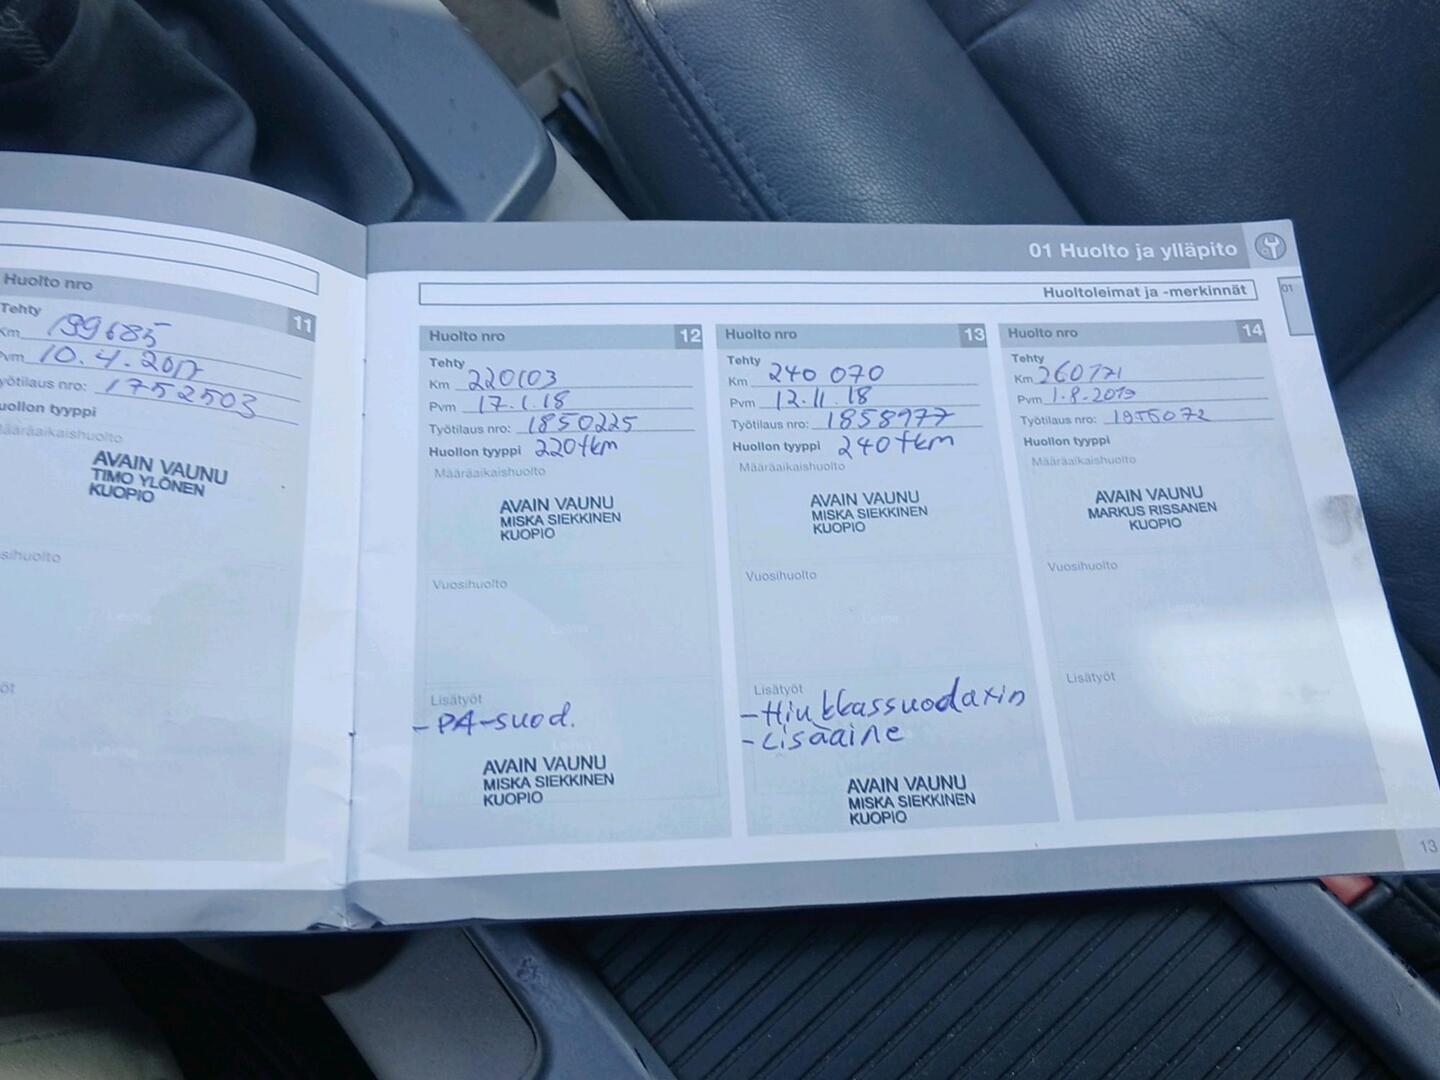 Huolto nro 11
Tehty
Km 199685
Pvm 10.4.2017
Työtilaus nro: 1752503
Huollon tyyppi
Määräaikaishuolto
AVAIN VAUNU
TIMO YLÖNEN
KUOPIO
01 Huolto ja ylläpito
Huoltoleimat ja -merkinnät
01
Huolto nro 12
Tehty
Km 220103
Pvm 17.1.18
Työtilaus nro: 1850225
Huollon tyyppi 220tkm
Määräaikaishuolto
AVAIN VAUNU
MISKA SIEKKINEN
KUOPIO
Vuosihuolto
Lisätyöt
-PA-suod.
AVAIN VAUNU
MISKA SIEKKINEN
KUOPIO
Huolto nro 13
Tehty
Km 240 070
Pvm 12.11.18
Työtilaus nro: 1858977
Huollon tyyppi 240tkm
Määräaikaishuolto
AVAIN VAUNU
MISKA SIEKKINEN
KUOPIO
Vuosihuolto
Lisätyöt
-Hiukkassuodaxin
-Lisäaine
AVAIN VAUNU
MISKA SIEKKINEN
KUOPIO
Huolto nro 14
Tehty
Km
Pvm 1.8.2019
Työtilaus nro:
Huollon tyyppi
Määräaikaishuolto
AVAIN VAUNU
MARKUS RISSANEN
KUOPIO
Vuosihuolto
Lisätyöt
13